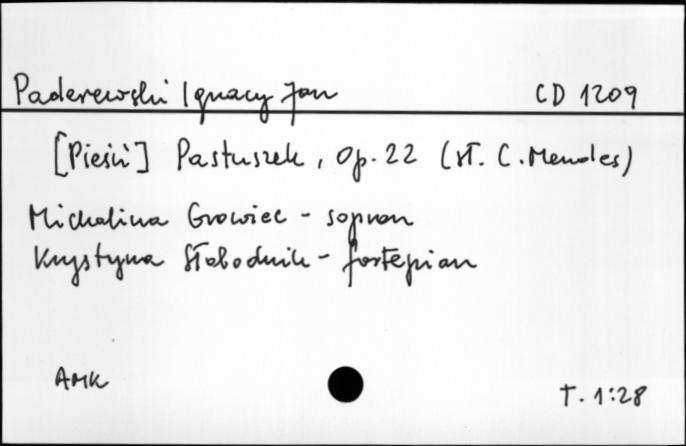 Paderewski Ignacy Jan CD 1209
[Pieśń] Pastuszek, Op. 22 (sł. C. Mendes)
Michalina Growiec - sopran
Krystyna Słobodnik - fortepian
AMK T. 1:28